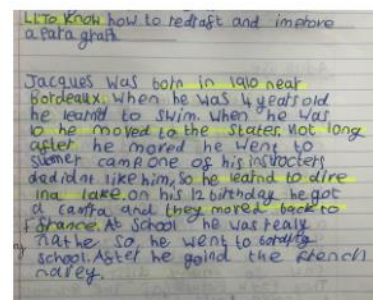 LI: To Know how to redraft and improve
a paragraph
Jacques was born in 1910 near
Bordeaux. When he was 4 years old
he learnd to swim. When he was
10 he moved to the states. Not long
after he moved he went to
summer camp one of his instructers
dadidnt like him, so he learnd to dive
in a lake. on his 12 birthday he got
a camra and they moved back to
France. At school he was realy
he went to
school. After he goind the french
navey.